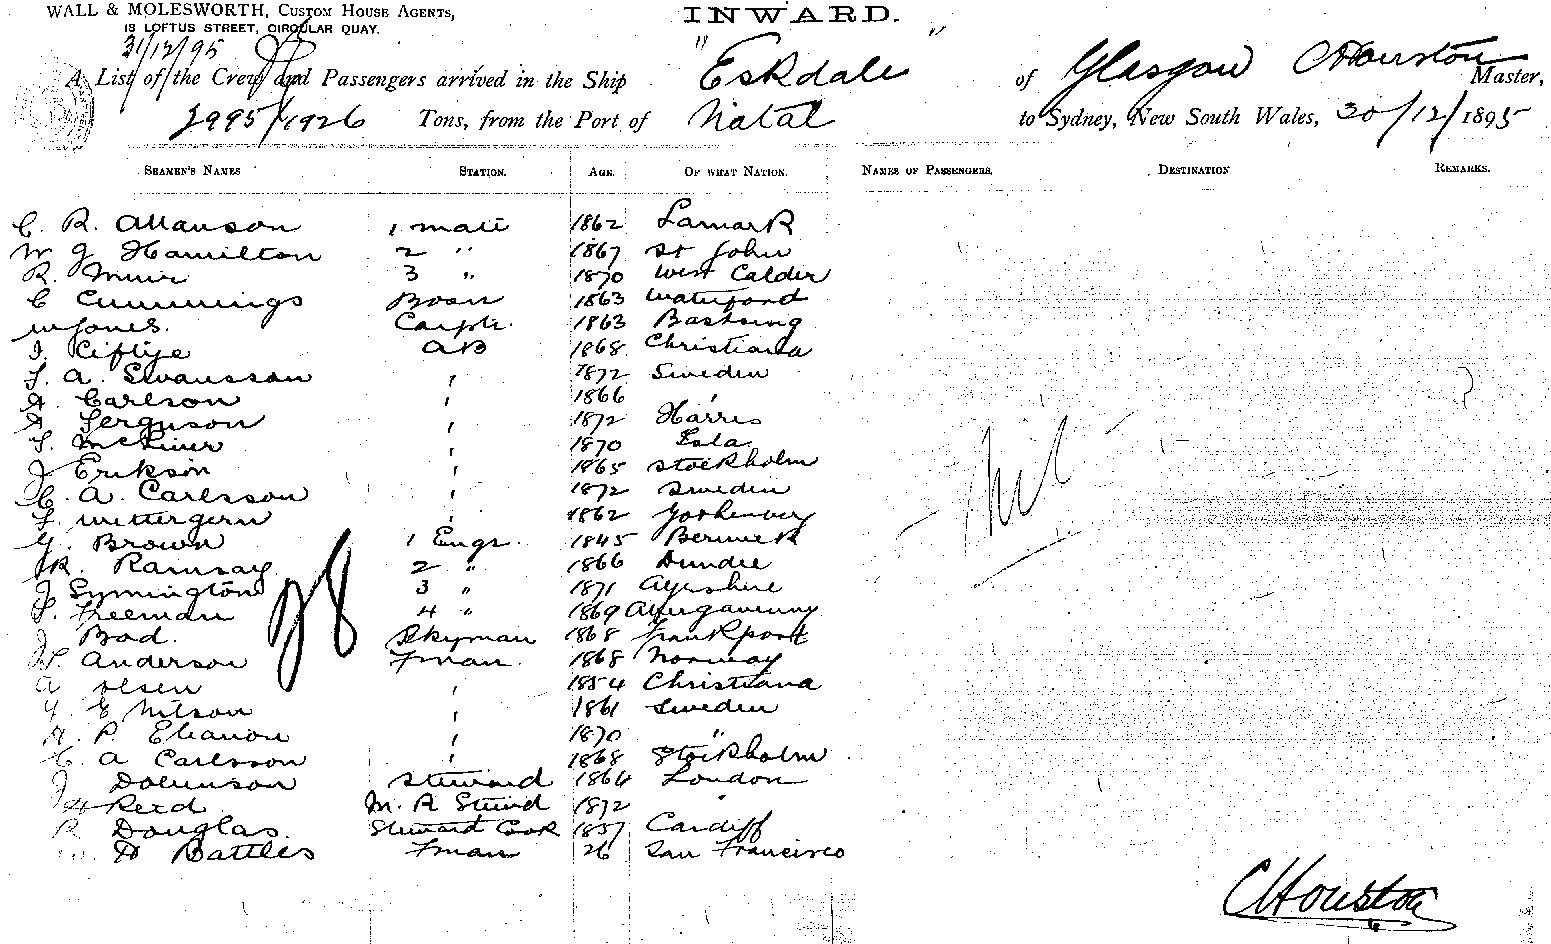 WALL & MOLESWORTH, CUSTOM HOUSE AGENTS,
18 LOFTUS STREET, CIRCULAR QUAY.
INWARD.
31/12/95
A List of the Crew and Passengers arrived in the Ship "Eskdale" of Glasgow C Houston Master,
2995/1926 Tons, from the Port of Natal to Sydney, New South Wales, 30/12/1895
SEAMEN'S NAMES STATION. AGE. OF WHAT NATION. NAMES OF PASSENGERS. DESTINATION REMARKS.
C. R. Allanson 1 mate 1862 Lanark
W J Hamilton 2 " 1867 St John
R. Muir 3 " 1870 West Calder
C Cummings Bosn 1863 Waterford
W Jones. Carptr. 1863
AB 1868 Christiana
A. Swansson ' 1872 Sweden
A. Carlson ' 1866 '
A Ferguson ' 1872 Harris
' 1870
J. Erikson ' 1865 Stockholm
C. A. Carlsson ' 1872 Sweden
' 1862
Brown 1 Engr. 1845 Berwick
R. Ramsay 2 " 1866 Dundee
J Symington 3 " 1871 Ayrshire
Freeman 4 " 1869
J. 1868
Anderson Fman. 1868 Norway
A Olsen ' 1854 Christiana
E Nilson ' 1861 Sweden
P. ' 1870 "
C. A Carlsson ' 1868 Stockholm
J Steward 1864 London
H Reid M. R Stewd 1872 "
R Douglas. Steward Cook 1857 Cardiff
H Battles Fman 26 San Francisco
28
Nil
C Houston